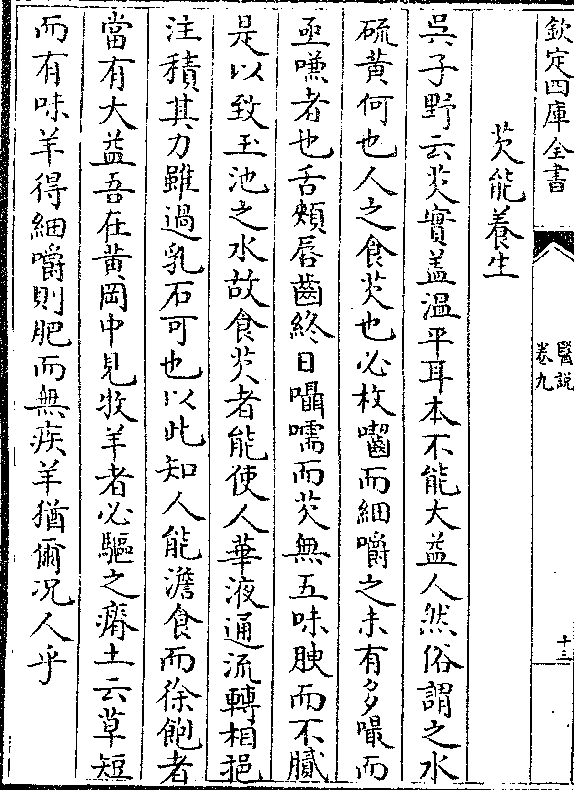 欽定四庫全書
醫說
卷九
十三
芡能養生
吳子野云芡實盖溫平耳本不能大益人然俗謂之水
硫黃何也人之食芡也必枚嚙而細嚼之未有多嘬而
亟嚥者也舌頰唇齒終日囁嚅而芡無五味腴而不膩
是以致玉池之水故食芡者能使人華液通流轉相挹
注積其力雖過乳石可也以此知人能澹食而徐飽者
當有大益吾在黃岡中見牧羊者必驅之瘠土云草短
而有味羊得細嚼則肥而無疾羊猶爾况人乎